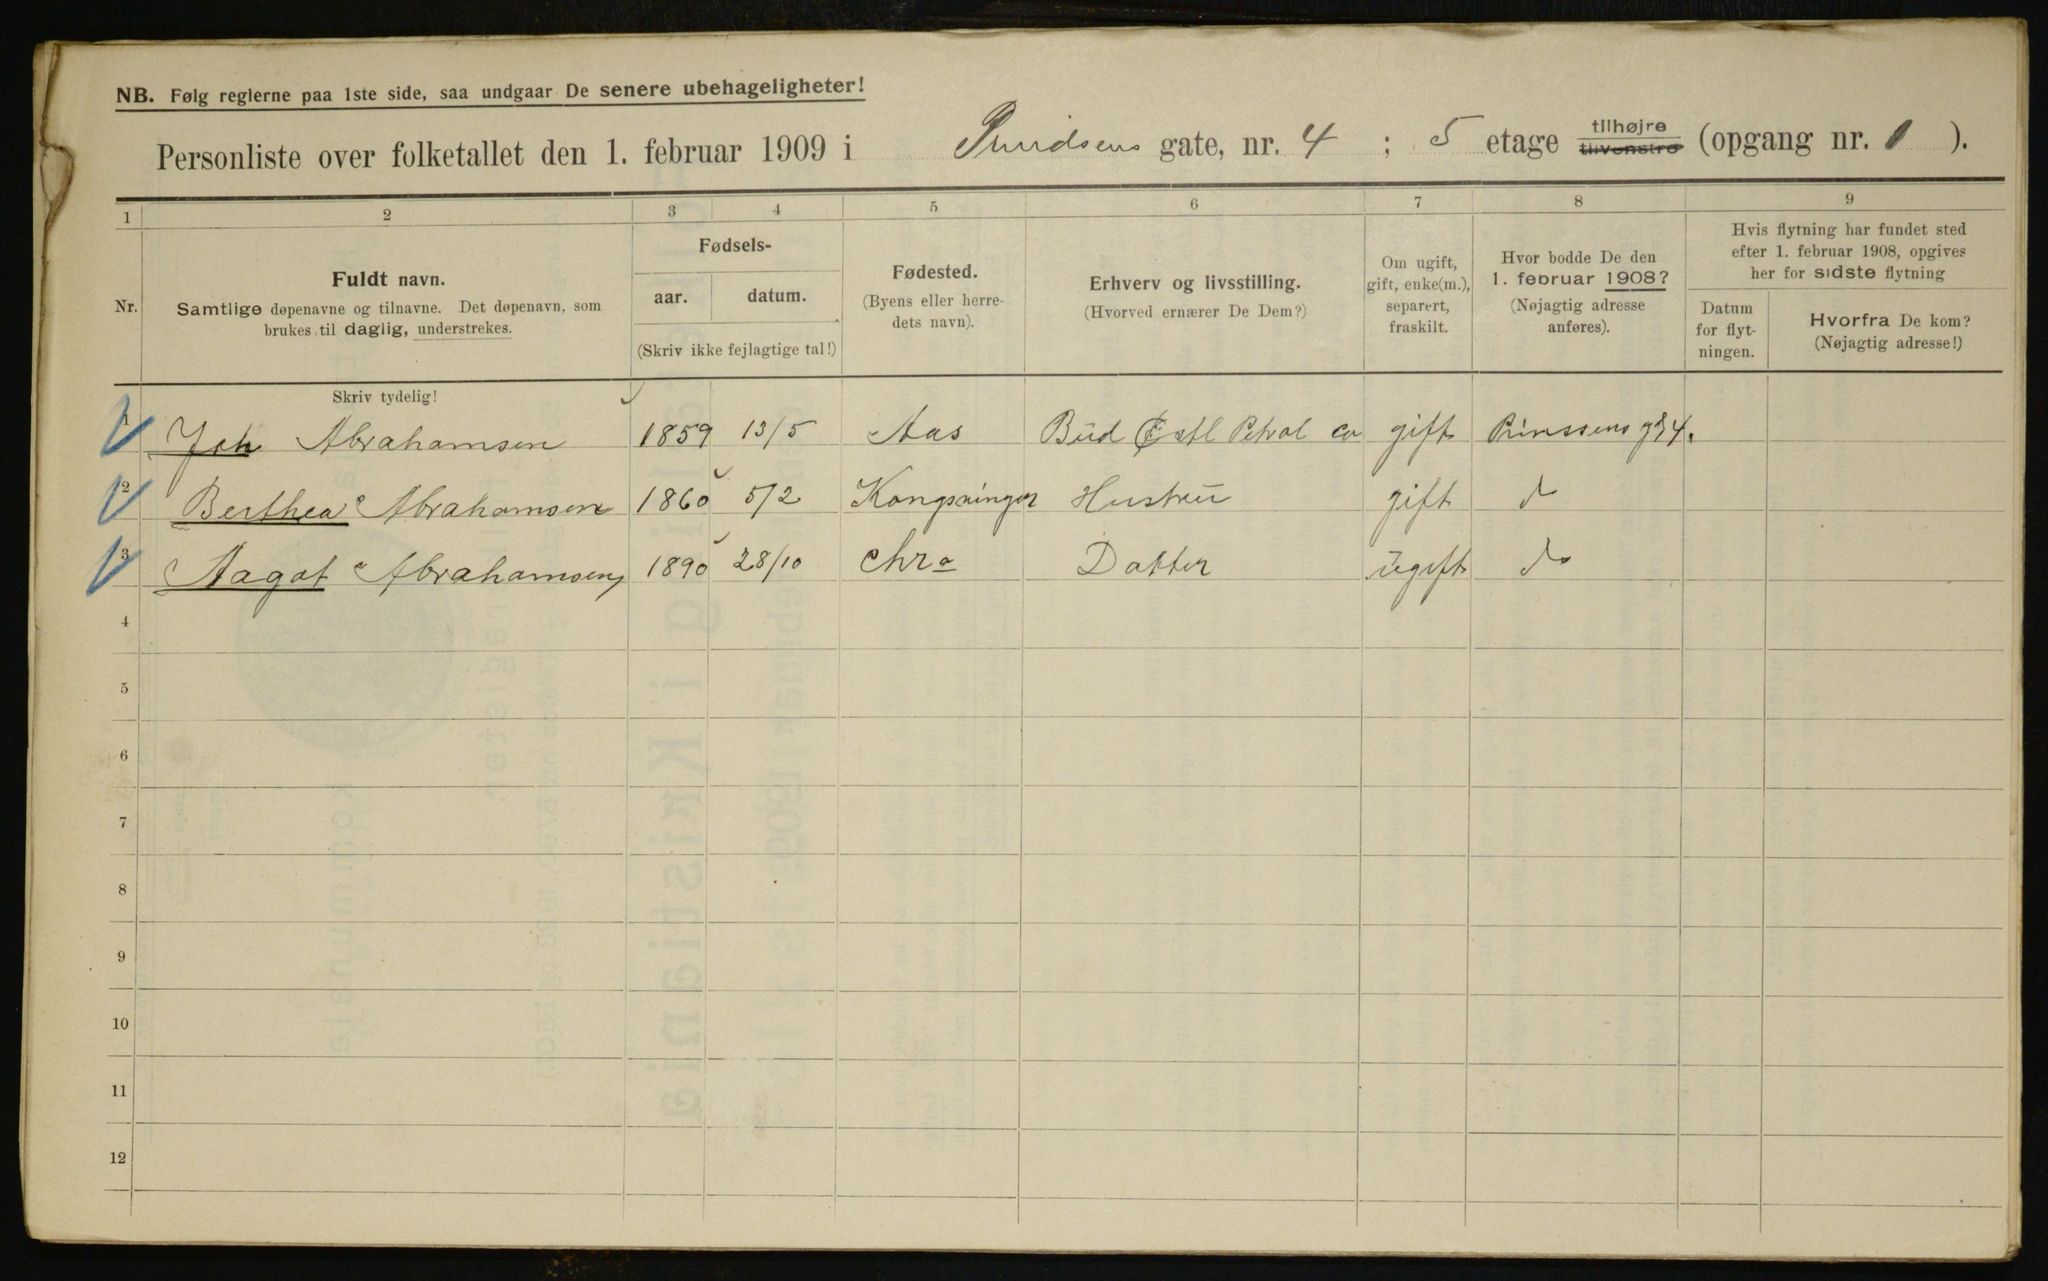 NB. Følg reglerne paa 1ste side, saa undgaar De senere ubehageligheter!
Personliste over folketallet den 1. februar 1909 i gate, nr. 4 ; 5 etage tilhøjre tilvenstre (opgang nr. ).
1 2 3 4 5 6 7 8 9
Nr.
Fuldt navn.
Samtlige døpenavne og tilnavne. Det døpenavn, som
brukes til daglig, understrekes.
Skriv tydelig!
Fødsels-
aar. datum.
(Skriv ikke fejlagtige tal!)
Fødested.
(Byens eller herre-
dets navn).
Erhverv og livsstilling.
(Hvorved ernærer De Dem?)
Om ugift,
gift, enke(m.),
separert,
fraskilt.
Hvor bodde De den
1. februar 1908?
(Nøjagtig adresse
anføres).
Hvis flytning har fundet sted
efter 1. februar 1908, opgives
her for sidste flytning
Datum
for flyt-
ningen.
Hvorfra De kom?
(Nøjagtig adresse!)
1 Joh Abrahamsen 1859 13/5 Aas Bud Østl Petrol Co gift Prinssens gt 4.
2 Berthea Abrahamsen 1860 5/2 Kongsvinger Hustru gift do
3 Aagot Abrahamsen 1890 28/10 Chra Datter ugift do
4
5
6
7
8
9
10
11
12